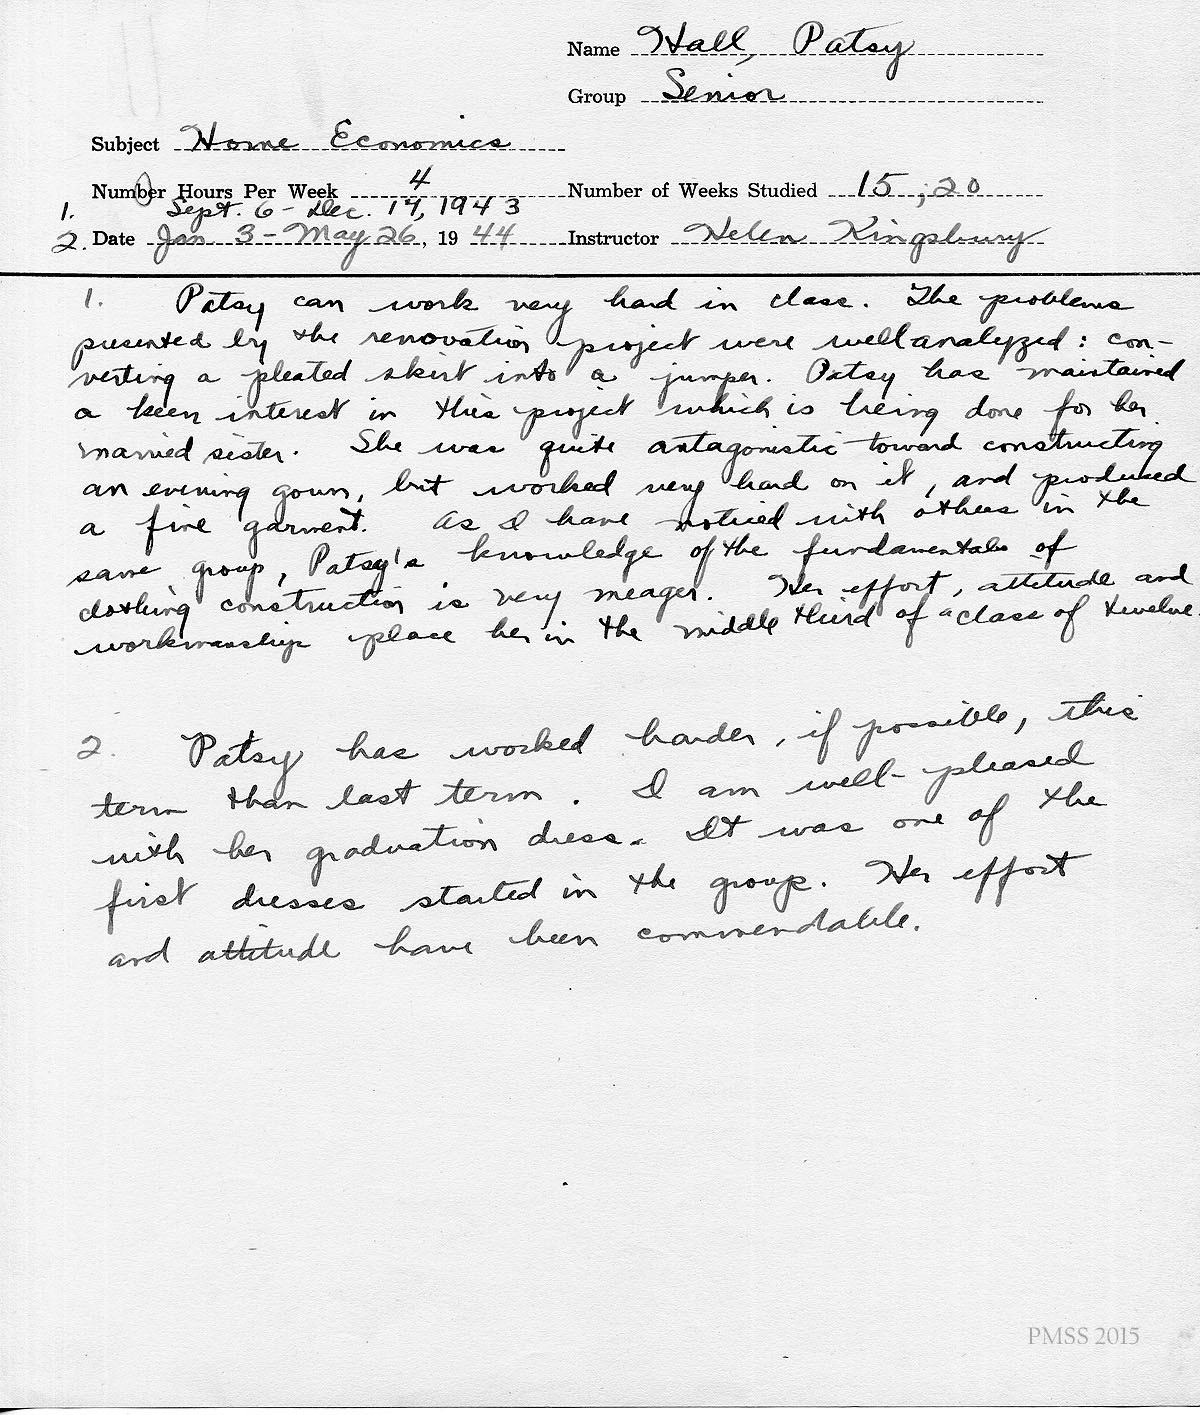 Name Hall, Patsy
Group Senior
Subject Home Economics
Number Hours Per Week 4 Number of Weeks Studied 15, 20
1. Sept. 6 - Dec. 14, 1943
2. Date Jan 3 - May 26, 1944 Instructor Helen Kingsbury
1. Patsy can work very hard in class. The problems
presented by the renovation project were well analyzed: con-
verting a pleated skirt into a jumper. Patsy has maintained
a keen interest in this project which is being done for her
married sister. She was quite antagonistic toward constructing
an evening gown, but worked very hard on it, and produced
a fine garment. As I have noticed with others in the
same group, Patsy's knowledge of the fundamentals of
clothing construction is very meager. Her effort, attitude and
workmanship place her in the middle third of a class of twelve.
2. Patsy has worked harder, if possible, this
term than last term. I am well-pleased
with her graduation dress. It was one of the
first dresses started in the group. Her effort
and attitude have been commendable.
PMSS 2015